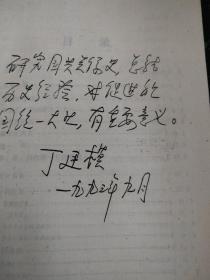 研究国共关系史，总结
历史经验，对促进祖
国统一大业，有重要意义。
丁建模
一九九三年九月